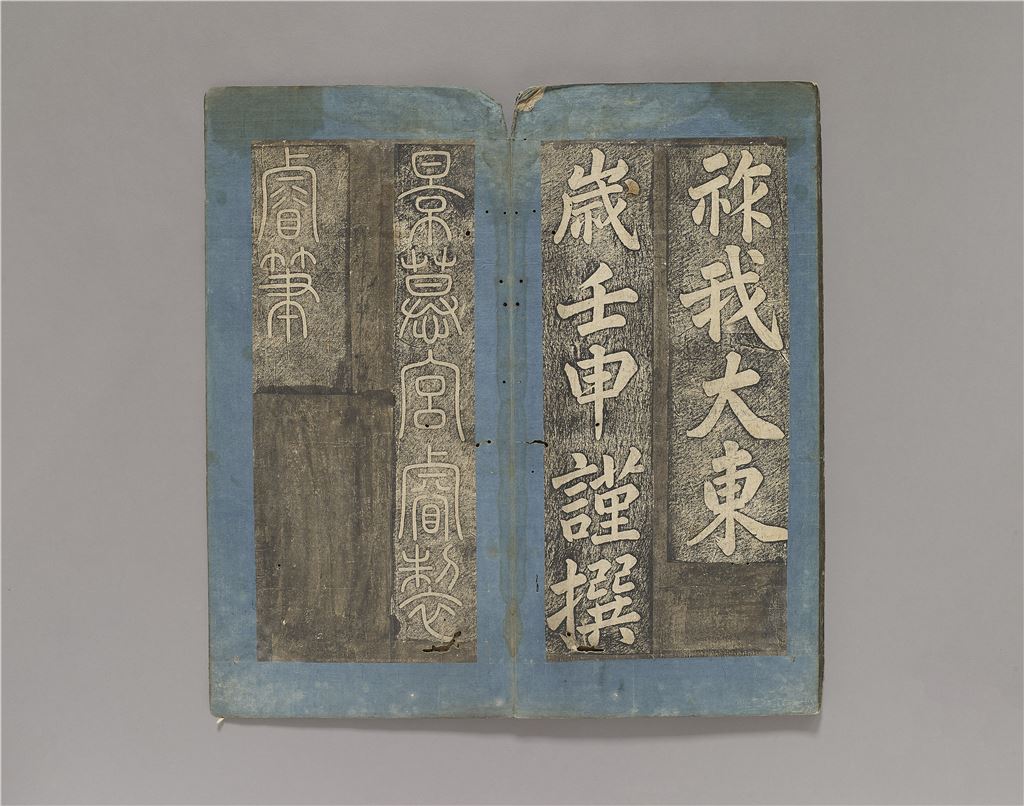 祚我大東
歲壬申謹撰
景慕宮睿製
睿筆